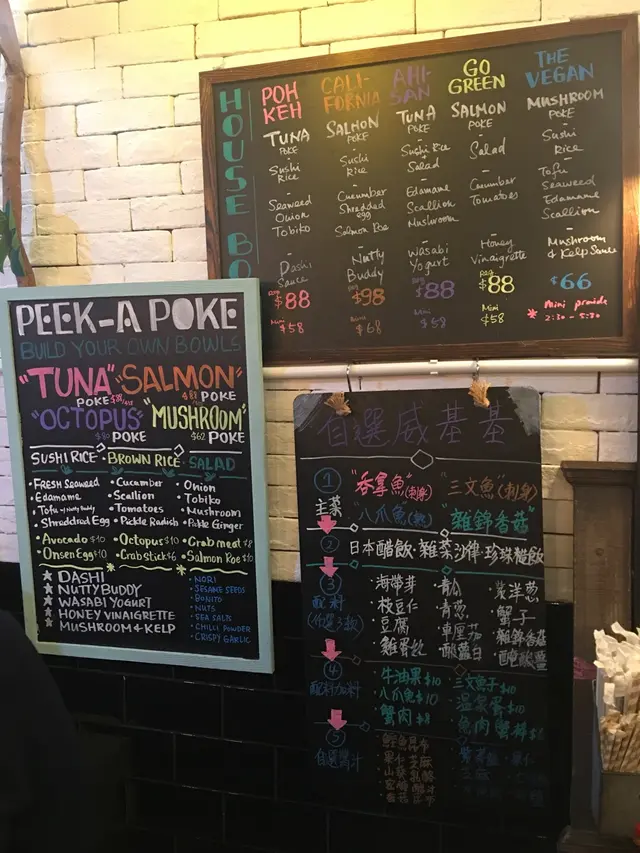 HOUSE BO
POH KEH
TUNA
POKE
-
Sushi Rice
-
Seaweed
Onion
Tobiko
-
Dashi Sauce
Reg $88
Mini $58
CALI-FORNIA
SALMON
POKE
-
Sushi Rice
-
Cucumber
Shredded egg
Salmon Roe
-
Nutty Buddy
Reg $98
Mini $68
AHI-SAN
TUNA
POKE
-
Sushi Rice + Salad
-
Edamame
Scallion
Mushroom
-
Wasabi Yogurt
$88
Mini $58
GO GREEN
SALMON
POKE
-
Salad
-
Cucumber
Tomatoes
-
Honey Vinaigrette
Reg $88
Mini $58
THE VEGAN
MUSHROOM
POKE
-
Sushi Rice
-
Tofu
Seaweed
Edamame
Scallion
-
Mushroom & Kelp Sauce
$66
* Mini provide
2:30 - 5:30
PEEK-A POKE
BUILD YOUR OWN BOWLS
"TUNA" "SALMON"
POKE POKE
"OCTOPUS" "MUSHROOM"
$80 POKE $62 POKE
SUSHI RICE · BROWN RICE · SALAD
• FRESH Seaweed • Cucumber • Onion
• Edamame • Scallion • Tobiko
• Tofu • Tomatoes • Mushroom
• Shreddrad Egg • Pickle Radish • Pickle Ginger
• Avocado $10 • Octopus $10 • Crab meat $8
• Onsen Egg $10 • Crab stick $6 • Salmon Roe $10
★ DASHI
★ NUTTY BUDDY
★ WASABI YOGURT
★ HONEY VINAIGRETTE
★ MUSHROOM & KELP
• NORI
• SESAME SEEDS
• BONITO
• NUTS
• SEA SALTS
• CHILLI POWDER
• CRISPY GARLIC
自選威基基
① 主菜
"吞拿魚"(刺身) "三文魚"(刺身)
"八爪魚"(熟) "雜錦香菇"
② 日本醋飯·雜菜沙律·珍珠糙飯
③ 配料
(任選3款)
·海帶芽 ·青瓜 ·紫洋葱
·枝豆仁 ·青葱 ·蟹子
·豆腐 ·車厘茄 ·雜錦香菇
·雞蛋絲 ·酸蘿白 ·酸蘿薑
④ 配料加料
牛油果$10 三文魚子$10
八爪魚$10 溫泉蛋$10
蟹肉$8 魚肉蟹柳$6
⑤ 自選醬汁